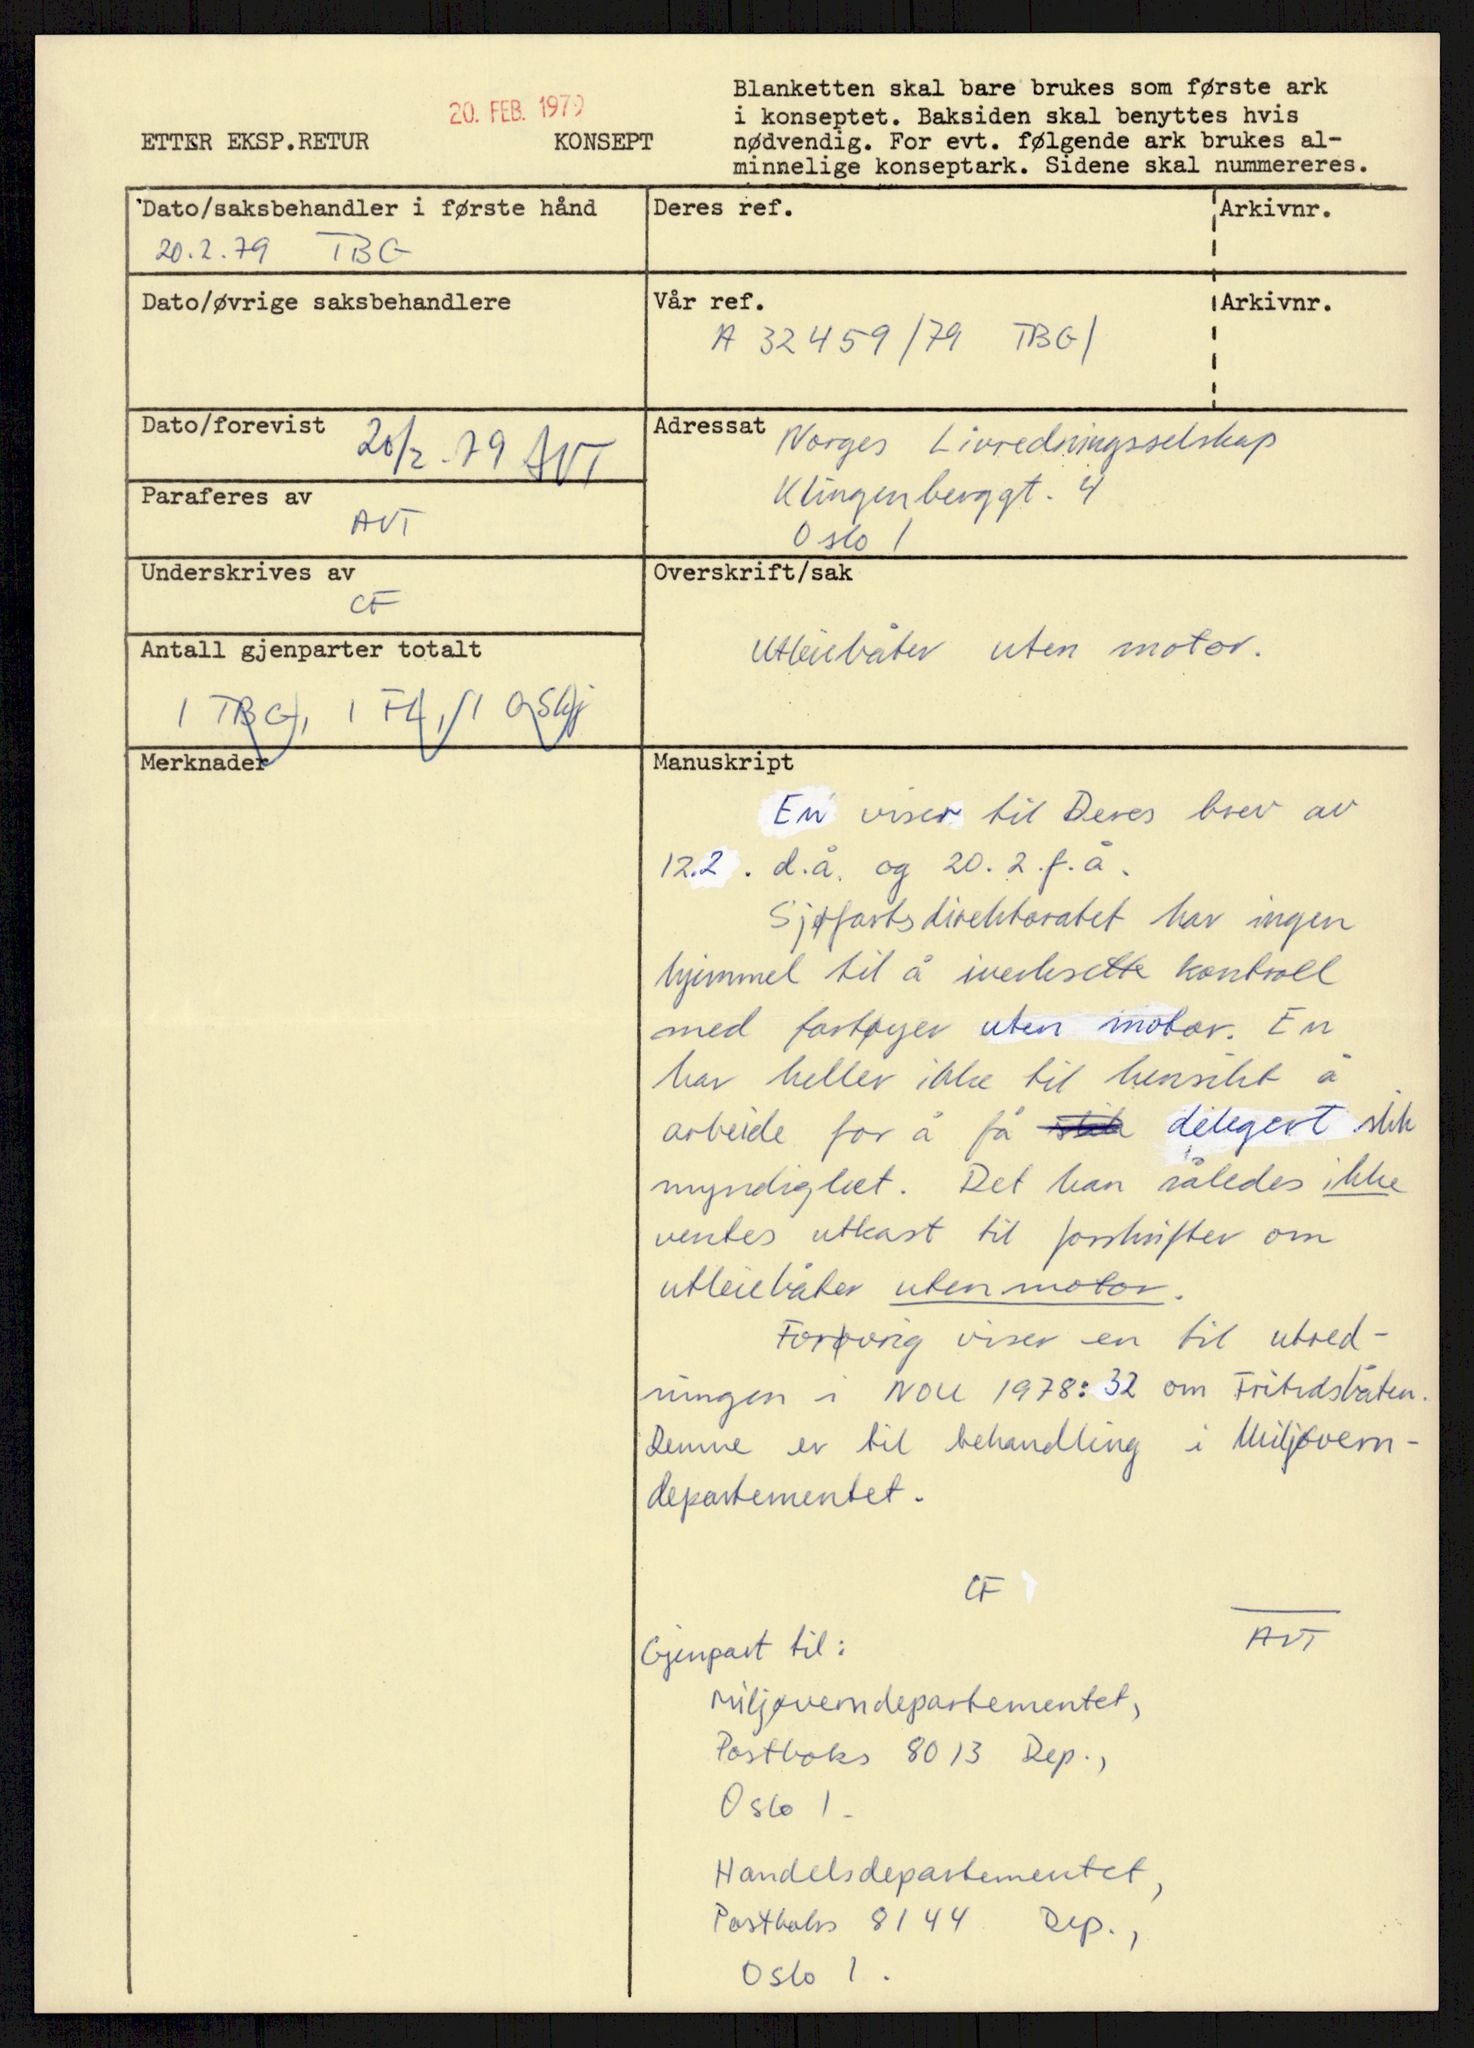 Blanketten skal bare brukes som første ark
i konseptet. Baksiden skal benyttes hvis
nødvendig. For evt. følgende ark brukes al-
minnelige konseptark. Sidene skal nummereres.
20. FEB. 1979
ETTER EKSP.RETUR KONSEPT
Dato/saksbehandler i første hånd
20.2.79 TBG
Deres ref.
Arkivnr.
Dato/øvrige saksbehandlere
Vår ref.
A 32459/79 TBG/
Arkivnr.
Dato/forevist
20/2.79 AVT
Adressat
Norges Livredningsselskap
Klingenberggt. 4
Oslo 1
Paraferes av
AVT
Underskrives av
CF
Overskrift/sak
Utleiebåter uten motor.
Antall gjenparter totalt
1 TBG, 1 FL, 1 OSkj
Merknader
Manuskript
En viser til Deres brev av
12.2. d.å. og 20.2.f.å.
Sjøfartsdirektoratet har ingen
hjemmel til å iverksette kontroll
med fartøyer uten motor. En
har heller ikke til hensikt å
arbeide for å få delegert slik
myndighet. Det kan således ikke
ventes utkast til forskrifter om
utleiebåter uten motor.
Forøvrig viser en til utred-
ningen i NOU 1978:32 om Fritidsbåten.
Denne er til behandling i Miljøvern-
departementet.
CF
AVT
Gjenpart til:
Miljøverndepartementet,
Postboks 8013 Dep.,
Oslo 1.
Handelsdepartementet,
Postboks 8144 Dep.,
Oslo 1.